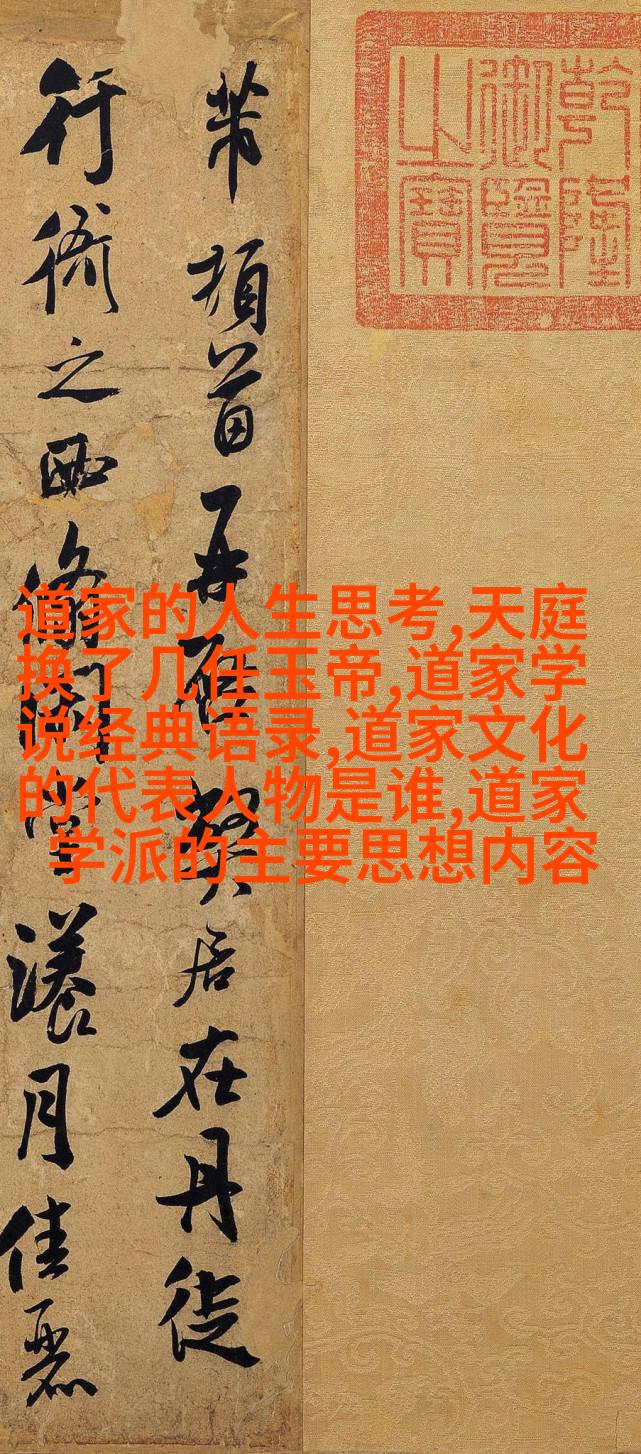 乾隆
御覽
之寶
芾頓首再啟弊居在丹徒
行衙之西翛閒堂漾月佳麗
道家的人生思考,天庭
换了几任玉帝,道家学
说经典语录,道家文化
的代表人物是谁,道家
学派的主要思想内容